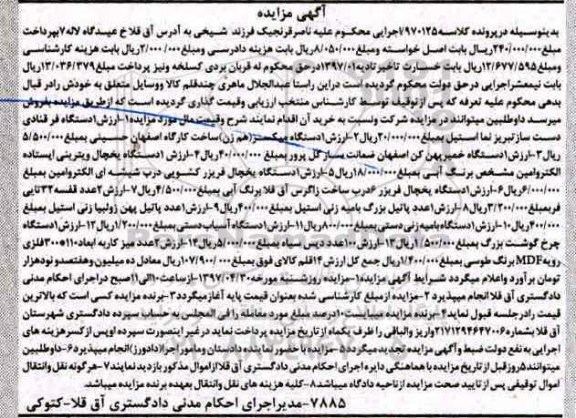 آگهی مزایده
بدینوسیله درپرونده کلاسه ۹۷۰۱۲۵/اجرایی محکوم علیه ناصرقرنجیک فرزند شیخی به آدرس آق قلا خ عیدگاه لاله۷بپرداخت
مبلغ۲۴۰/۰۰۰/۰۰۰ریال بابت اصل خواسته ومبلغ۸/۰۵۰/۰۰۰ریال بابت هزینه دادرسی ومبلغ۲/۰۰۰/۰۰۰ریال بابت هزینه کارشناسی
ومبلغ۱۲/۶۷۷/۵۹۵ریال بابت خسارت تاخیرتادیه۱۳۹۷/۰۱درحق محکوم له قربان یردی کسلخه ونیز پرداخت مبلغ۱۳/۰۳۶/۳۷۹ریال
بابت نیمعشراجرایی درحق دولت محکوم گردیده است دراین راستا عبدالجلال ماهری چندقلم کالا ووسایل متعلق به خودش رادر قبال
بدهی محکوم علیه تعرفه که پس ازتوقیف توسط کارشناس منتخب ارزیابی وقیمت گذاری گردیده است که ازطریق مزایده بفروش
میرسد داوطلبین میتوانند در مزایده شرکت ونسبت به خرید آن اقدام نمایند شرح وقیمت مال مورد مزایده۱-ارزش۱دستگاه فر قنادی
دست سازتبریز نما استیل بمبلغ۲۰/۰۰۰/۰۰۰ریال۲-ارزش۱دستگاه میکسر(هم زن)ساخت کارگاه اصفهان حسینی بمبلغ۵/۵۰۰/۰۰۰
ریال۳-ارزش۱دستگاه خمیرپهن کن اصفهان ضمانت بسازگل پرور بمبلغ۴۰/۰۰۰/۰۰۰ریال۴-ارزش۱دستگاه یخچال ویترینی ایستاده
الکترولامین مشخص برنگ آبی بمبلغ۱۸/۰۰۰/۰۰۰ریال۵-ارزش۱دستگاه یخچال فریزر کشویی درب شیشه ای الکترولامین بمبلغ
۶/۰۰۰/۰۰۰ریال۶-ارزش۱دستگاه یخچال فریزر ۶درب ساخت زاگرس آق قلا برنگ آبی بمبلغ۴/۵۰۰/۰۰۰ریال۷-ارزش۲عدد قفسه۳۲تایی
فربمبلغ۳/۲۰۰/۰۰۰ریال۸-ارزش۱عدد پاتیل بزرگ بامیه زنی استیل بمبلغ۴۰۰/۰۰۰ریال۹-ارزش۱عدد پاتیل پهن زولبیا زنی استیل بمبلغ
۴۰۰/۰۰۰ریال۱۰-ارزش۱دستگاه بامیه زنی دستی بمبلغ۸۰۰/۰۰۰ریال۱۱-ارزش۱دستگاه آسیاب دستی بمبلغ۱/۲۰۰/۰۰۰ریال۱۲-ارزش۱دستگاه
چرخ گوشت بزرگ بمبلغ۱/۵۰۰/۰۰۰ریال۱۳-ارزش۱۰۰عدد دیس سیاه بمبلغ۵/۰۰۰/۰۰۰ریال۱۴-ارزش۲عدد میز کاربه ابعاد۱۱۰*۳۰۰فلزی
رویهMDFبرنگ طوسی بمبلغ۱/۴۰۰/۰۰۰ریال جمع کل ارزش۱۴قلم کالای فوق بمبلغ۱۰۷/۹۰۰/۰۰۰ریال معادل ده میلیون وهفتصد نودهزار
تومان برآورد واعلام میگردد شرایط آگهی مزایده۱-مزایده روزشنبه مورخه۱۳۹۷/۰۴/۳۰-ازساعت۱۰الی۱۱صبح دراجرای احکام مدنی
دادگستری آق قلا انجام میپذیرد ۲-مزایده ازمبلغ کارشناسی شده بعنوان قیمت پایه آغاز میگردد۳-برنده مزایده کسی است که بالاترین
قیمت رادرجلسه قبول نماید۴-برنده مزایده میبایست۱۰درصد مبلغ مورد معامله را فی المجلس به حساب سپرده دادگستری شهرستان
آق قلابشماره۲۱۷۱۲۹۴۶۴۷۰۰۶واریز والباقی را ظرف یکماه ازتاریخ مزایده پرداخت نماید در غیر اینصورت سپرده اوپس از کسرهزینه های
اجرایی به نفع دولت ضبط وآگهی مزایده تجدید میگردد۵-مزایده با حضور نماینده دادستان ومامور اجرا(دادورز)انجام میپذیرد۶-داوطلبین
میتوانند۵روزقبل ازتاریخ مزایده با هماهنگی دایره اجرای احکام مدنی دادگستری آق قلا ازاموال مذکور بازدیدنمایند۷-هرگونه نقل وانتقال
اموال توقیفی پس از تایید صحت مزایده ازناحیه دادگاه میباشد۸-کلیه هزینه های نقل وانتقال بعهده برنده مزایده میباشد.
۷۸۸۵-مدیراجرای احکام مدنی دادگستری آق قلا-کتوکی